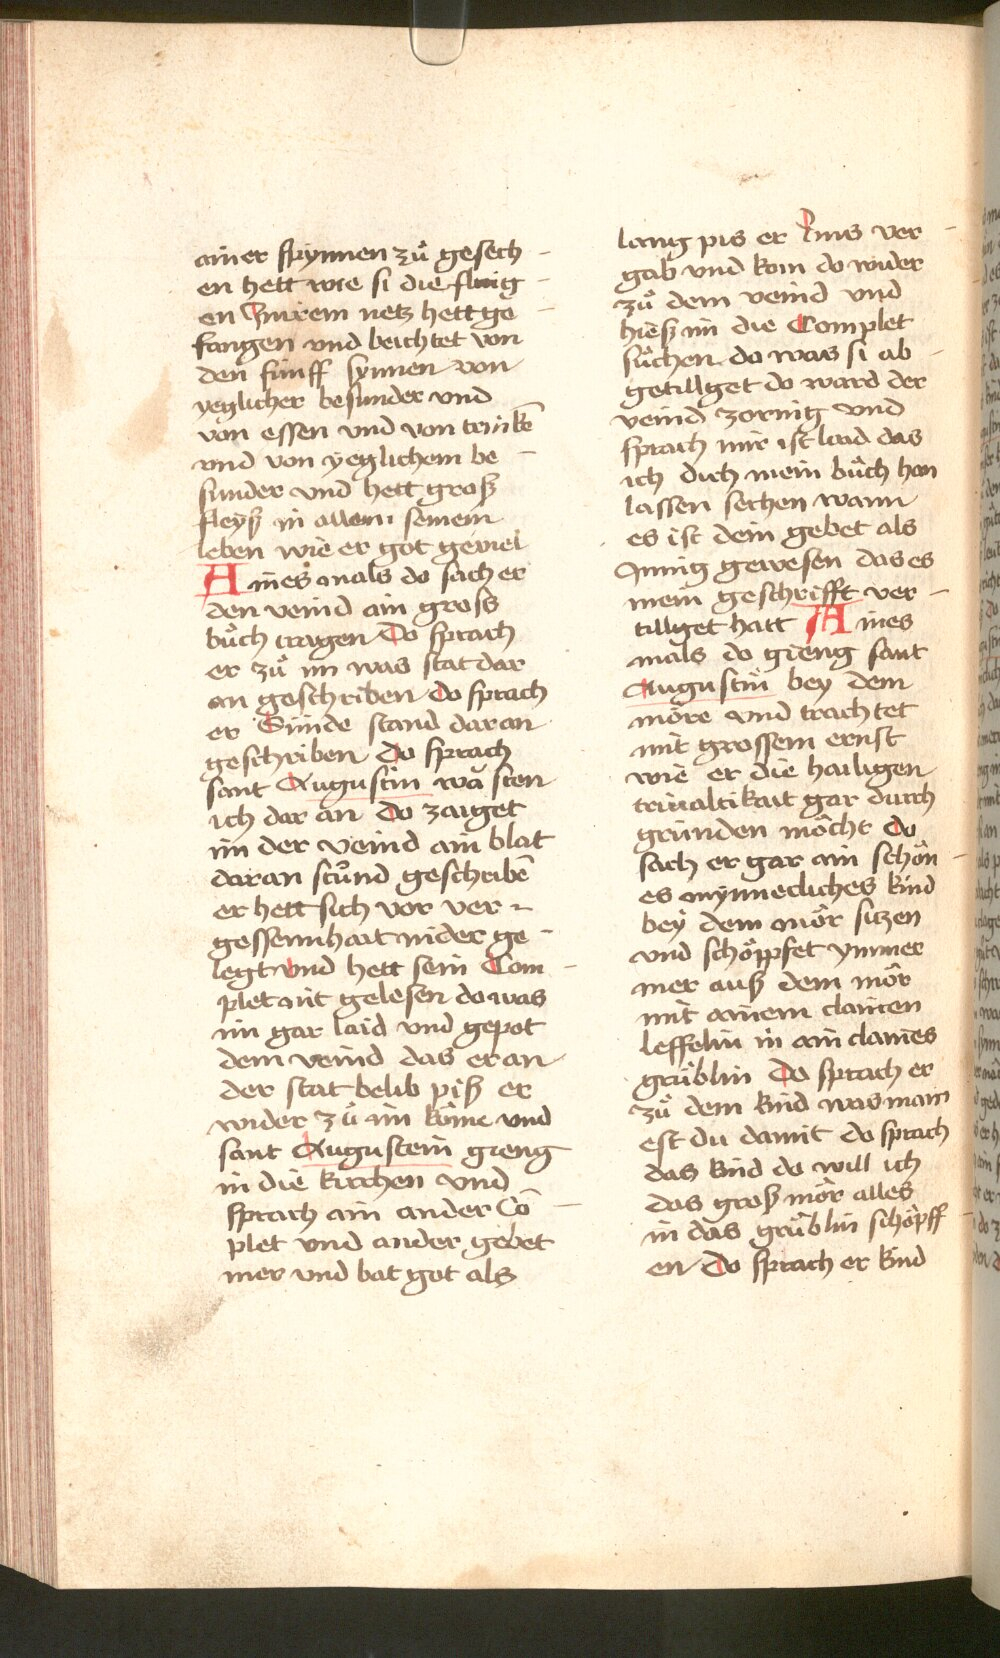 ainer spÿnnen zuͦ gesech -
en hett wie si die flieg -
en Jn irem netz hett ge -
fangen vnd beichtet von
den fünff synnen von
yeglicher besunder vnd
von essen vnd von trinkē
vnd von yeglichem be -
sunder vnd hett groß
fleyß in allem seinem
leben wie er got geviel
Aines mals do sach er
den veind ain gross
buͦch tragen Do sprach
er zuͦ im was stat dar
an geschriben Do sprach
er Sünde stand daran
geschriben Do sprach
sant Augustin wā sten
ich dar an Do zaiget
im der veind ain blat
daran stuͦnd geschribē
er hett sich vor ver -
gessennhait nider ge -
legt vnd hett sein Com -
plet nit gelesen do was
im gar laid vnd gepot
dem veind das er an
der stat belib piß er
wider zuͦ im köme vnd
sant Augustein gieng
in die kirchen vnd
sprach ain ander Cō -
plet vnd ander gebet
mer vnd bat got als
lang pis er Jms ver -
gab vnd kom do wider
zuͦ dem veind vnd
hieß im die Complet
suͦchen do was si ab -
getillget do ward der
veind zornig vnd
sprach mir ist laid das
ich dich mein buͦch hon
lassen sechen wann
es ist dein gebet als
Jnnig gewesen das es
mein geschrifft ver -
tillget hatt Aines
mals do gieng sant
Augustin bey dem
möre vnd trachtet
mit grossem ernst
wie er die hailigen
triualtikait gar durch
gründen möcht Do
sach er gar ain schön -
es mynnecliches kind
bey dem mör sitzen
vnd schöppfet ymmer
mer auß dem mör
mit ainem clainen
leffelin in ain claines
grüblin Do sprach er
zuͦ dem kind was main
est du damit do sprach
das kind do will ich
das groß mör alles
in das grüblin schöpff -
en Do sprach er kind